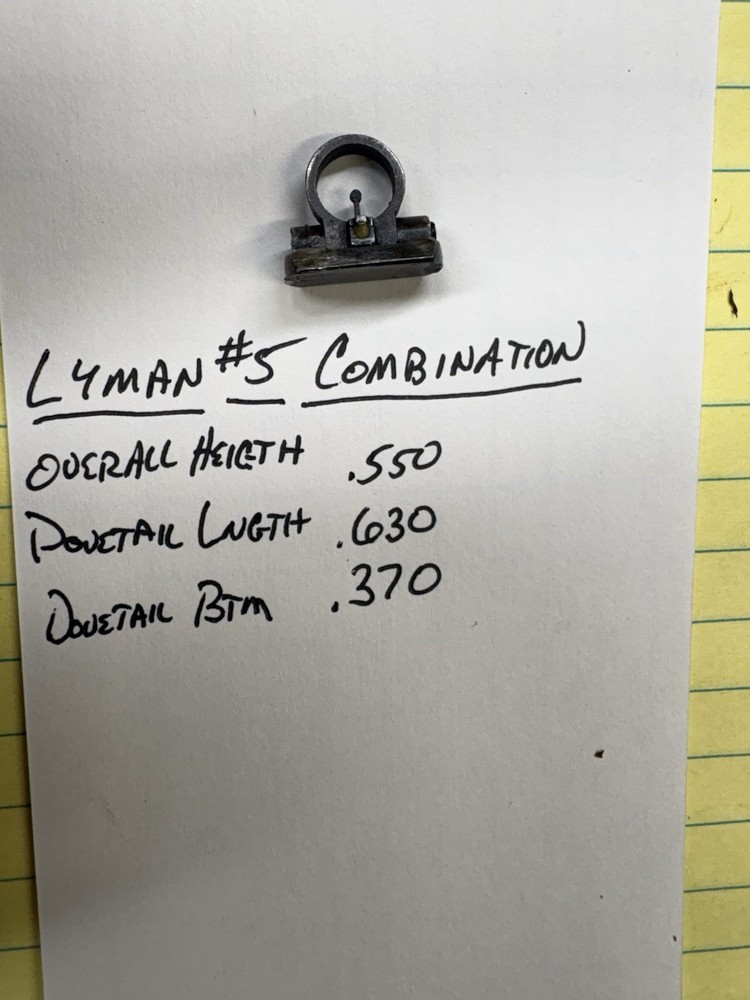 LYMAN #5 COMBINATION
OVERALL HEIGTH .550
DOVETAIL LNGTH .630
DOVETAIL BTM .370